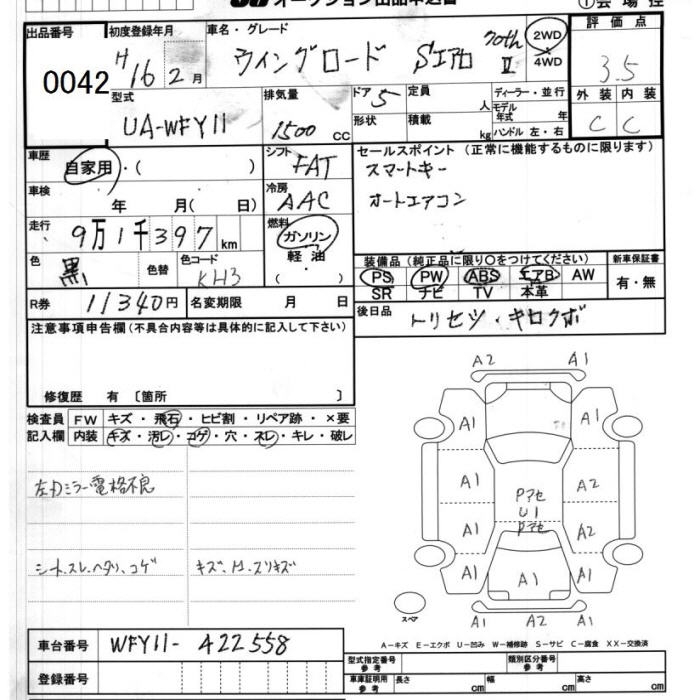 オークション出品申込書 ①会場控
出品番号 初度登録年月 車名・グレード 評価点
0042
H16 2月 ウィングロード Sエアロ 70th II 2WD 4WD 3.5
型式 排気量 ドア 定員 ディーラー・並行 外装 内装
UA-WFY11 1500 cc 5 人 モデル年式 年 C C
形状 積載 kg ハンドル 左・右
車歴 シフト セールスポイント (正常に機能するものに限ります)
自家用・( ) FAT スマートキー
車検 冷房 オートエアコン
年 月( 日) AAC
走行 燃料
9万1千397km ガソリン
色 色替 色コード 軽油 装備品(純正品に限り○をつけてください) 新車保証書
黒 KH3 ( ) PS PW ABS エアB AW 有・無
SR ナビ TV 本革
R券 11340円 名変期限 月 日 後日品 トリセツ・キロクボ
注意事項申告欄(不具合内容等は具体的に記入して下さい)
修復歴 有 〔箇所 〕
検査員 FW キズ・飛石・ヒビ割・リペア跡・×要
記入欄 内装 キズ・汚レ・コゲ・穴・スレ・キレ・破レ
左Dミラー電格不良
シートスレ、ヘタリ、コゲ
A2 A1
A1 A1
A1 Pアセ A2
U1
A1 Pアセ A2
A1 A1 A1
A1 A2 A1
スペア
A-キズ E-エクボ U-凹み W-補修跡 S-サビ C-腐食 XX-交換済
車台番号 WFY11-422558
登録番号
型式指定番号参考 類別区分番号参考
車庫証明用参考 長さ cm 幅 cm 高さ cm